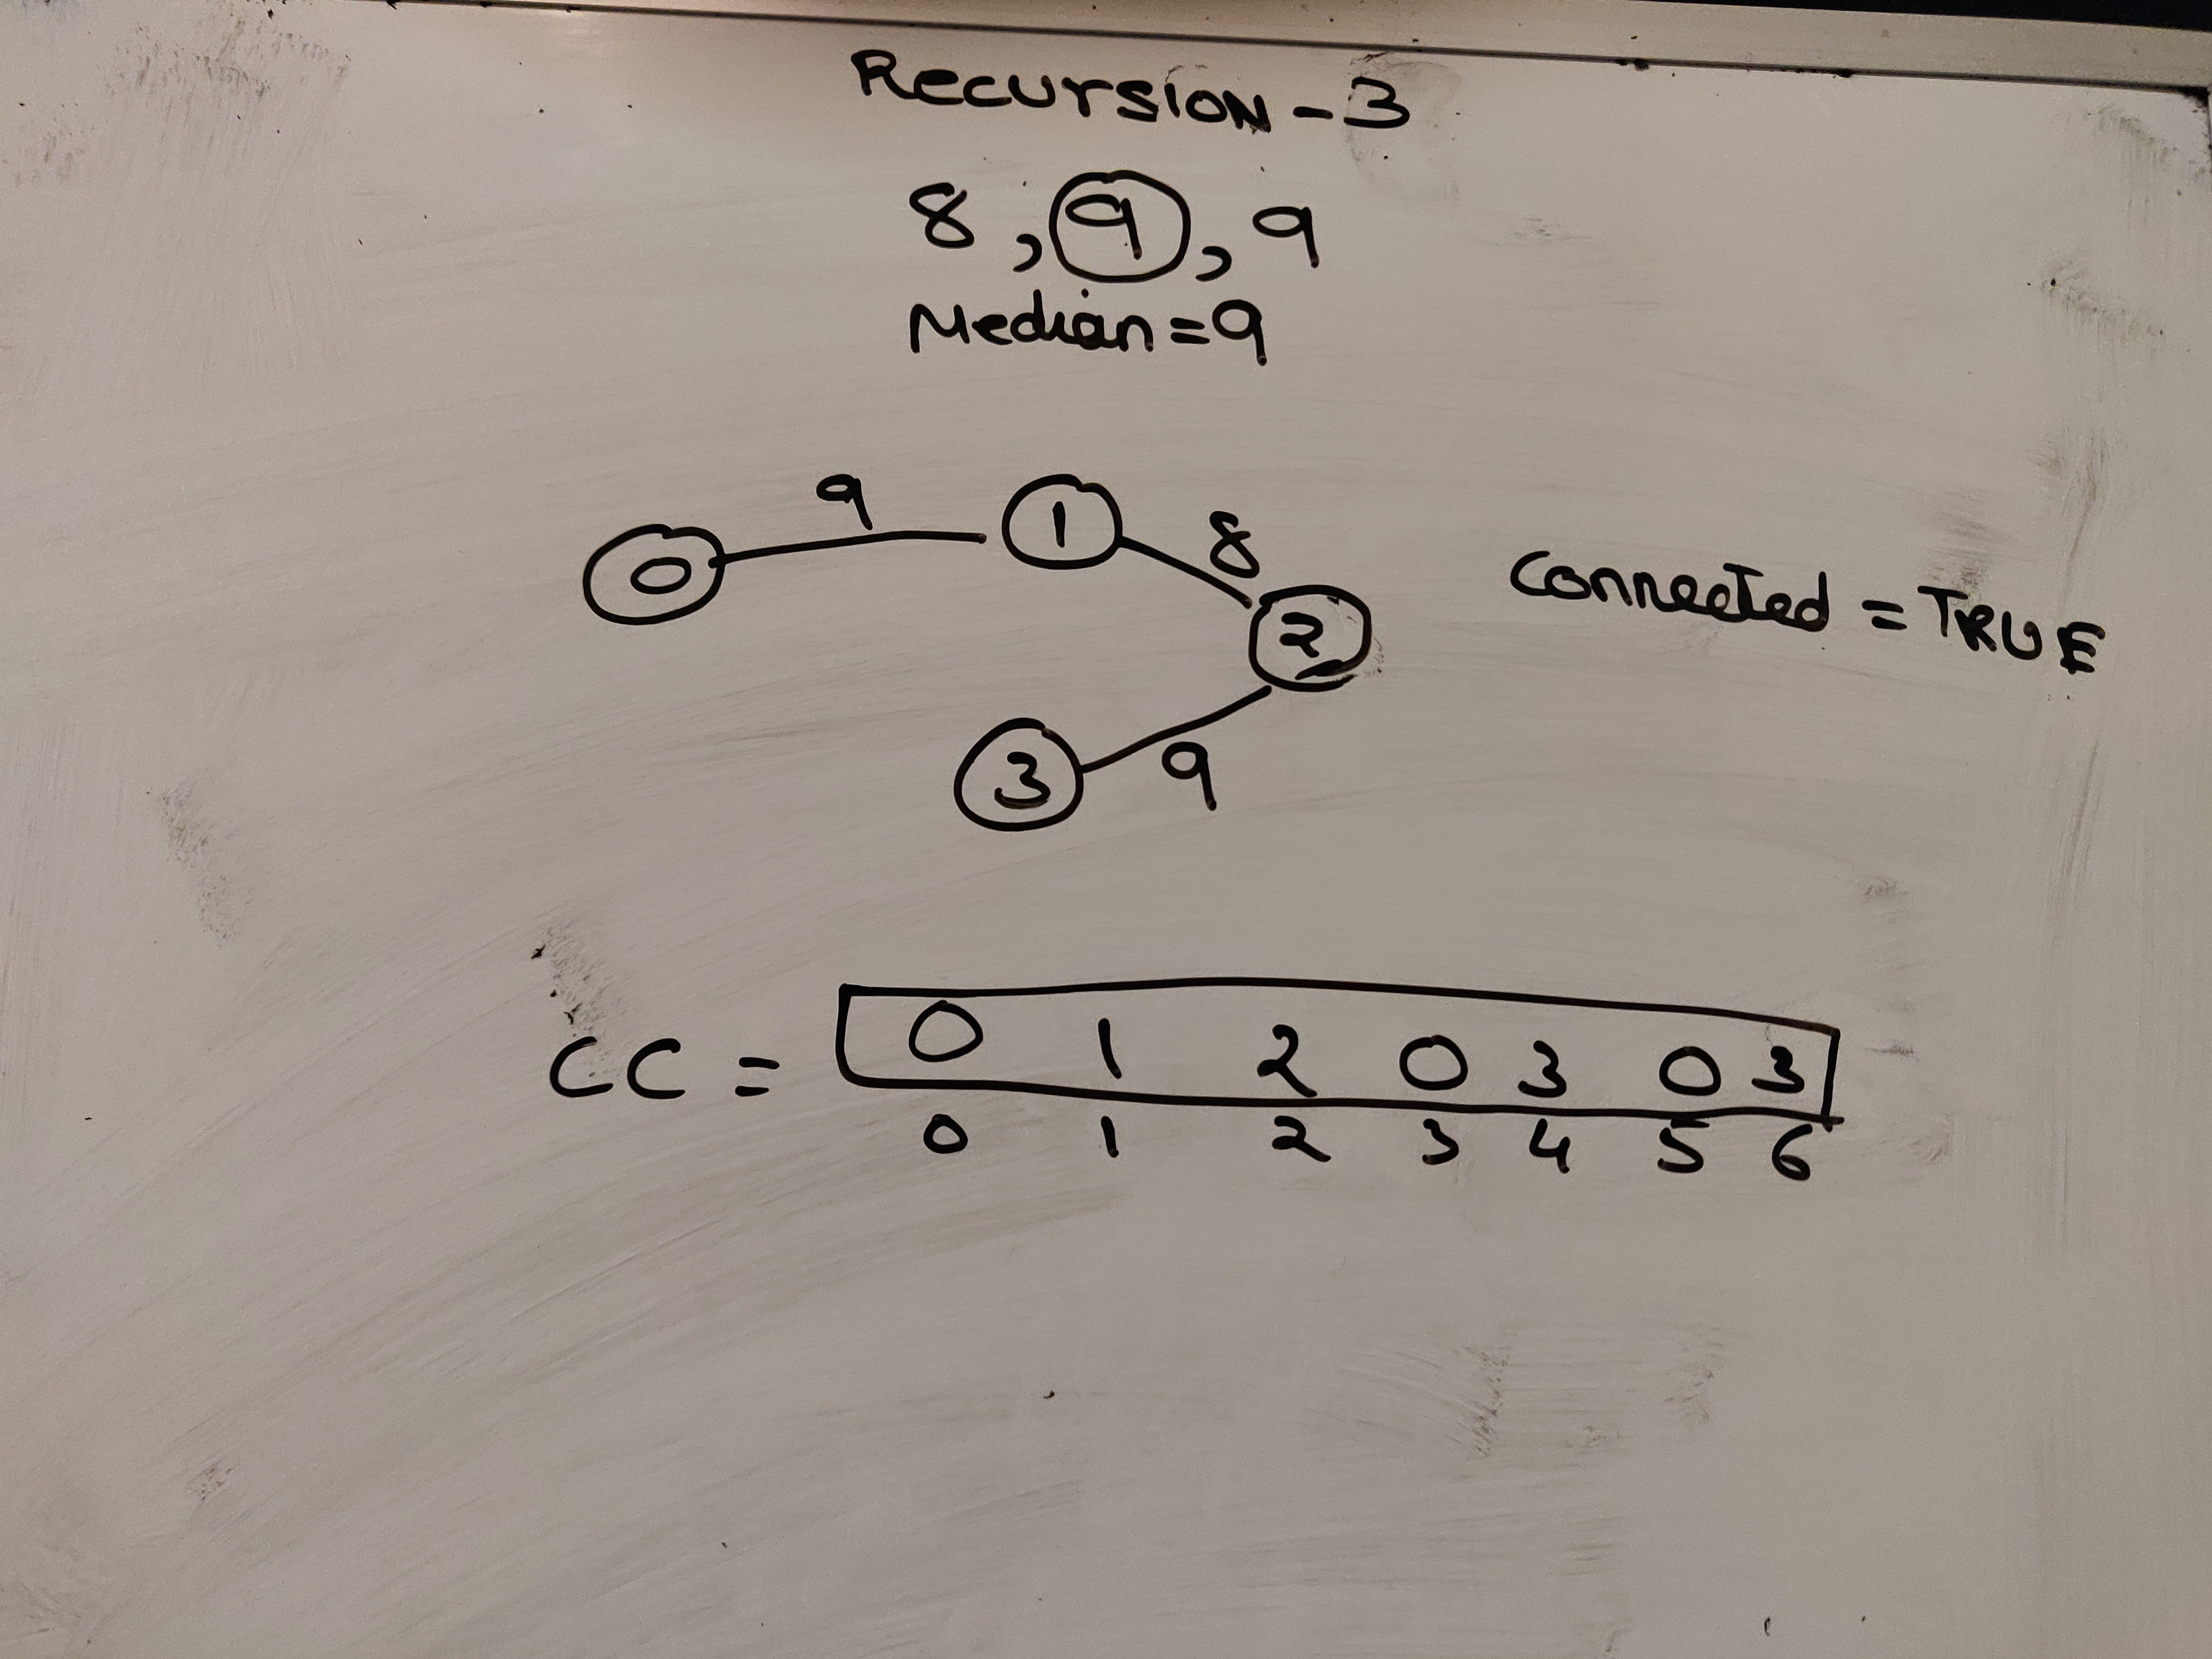 Recursion - 3
8, 9, 9
Median = 9
0 9 1 8 2 9 3
Connected = TRUE
CC = 0 1 2 0 3 0 3
0 1 2 3 4 5 6